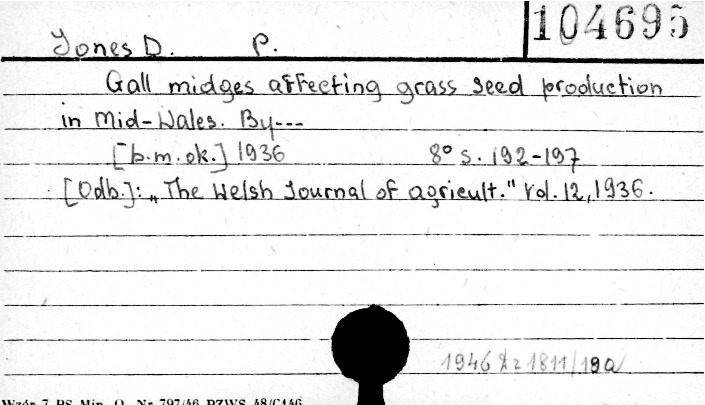 104695
Jones D. P.
Gall midges affecting grass seed production
in Mid-Wales. By---
[b.m.ok.] 1936 8° s. 192-197
[Odb.]: „The Welsh Journal of agricult." Vol. 12, 1936.
1946 1811/190
Wzór 7 PS Min. O. Nr 797/46 PZWS 48/C146